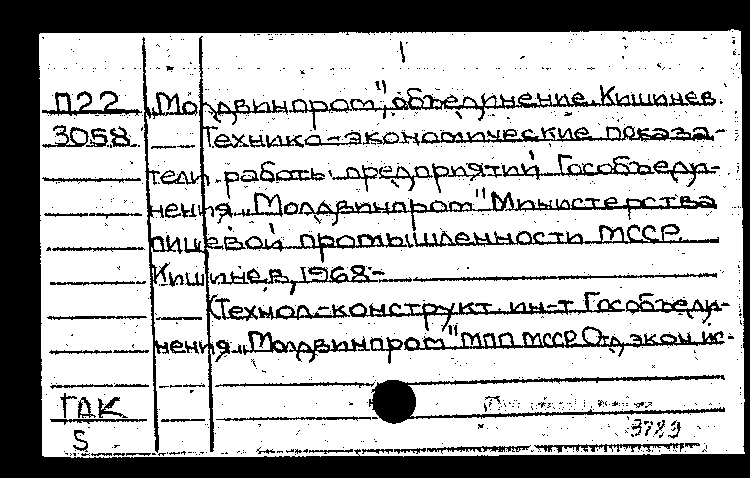 П22 „Молдвинпром", объединение. Кишинев.
3058 Технико-экономические показа-
тели работы предприятий Гособъеди-
нения „Молдвинпром" Министерства
пищевой промышленности МССР.
Кишинев, 1968-
(Технол.-конструкт. ин-т Гособъеди-
нения „Молдвинпром" МПП МССР. Отд. экон. ис-
ГДК
S 3789